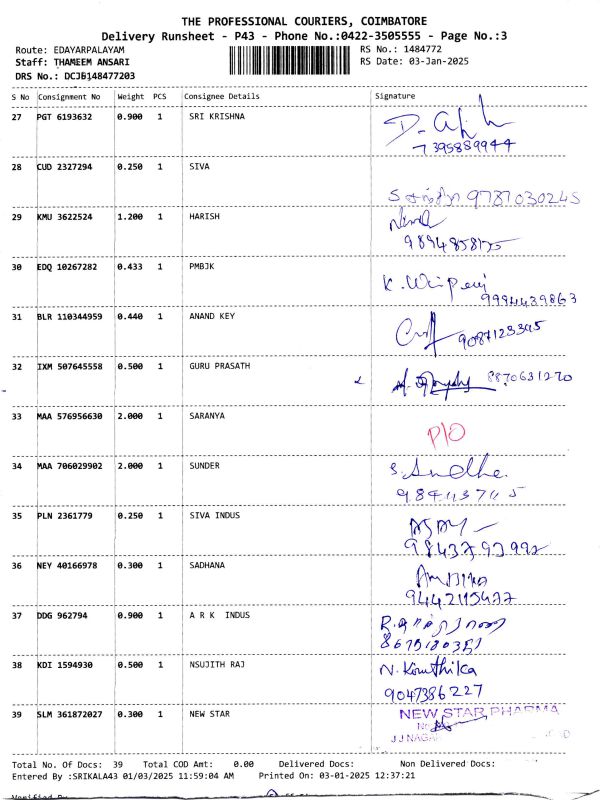 THE PROFESSIONAL COURIERS, COIMBATORE
Delivery Runsheet - P43 - Phone No.:0422-3505555 - Page No.:3
Route: EDAYARPALAYAM RS No.: 1484772
Staff: THAMEEM ANSARI RS Date: 03-Jan-2025
DRS No.: DCJB148477203
S No Consignment No Weight PCS Consignee Details Signature
27 PGT 6193632 0.900 1 SRI KRISHNA
7395889944
28 CUD 2327294 0.250 1 SIVA
9787030245
29 KMU 3622524 1.200 1 HARISH
30 EDQ 10267282 0.433 1 PMBJK
9994439863
31 BLR 110344959 0.440 1 ANAND KEY
9087123345
32 IXM 507645558 0.500 1 GURU PRASATH
8870631270
33 MAA 576956630 2.000 1 SARANYA
P/O
34 MAA 706029902 2.000 1 SUNDER
35 PLN 2361779 0.250 1 SIVA INDUS
36 NEY 40166978 0.300 1 SADHANA
37 DDG 962794 0.900 1 A R K INDUS
38 KDI 1594930 0.500 1 NSUJITH RAJ
N. Kiruthika
9047386227
39 SLM 361872027 0.300 1 NEW STAR NEW STAR PHARMA
J J NAGAR
Total No. Of Docs: 39 Total COD Amt: 0.00 Delivered Docs: Non Delivered Docs:
Entered By :SRIKALA43 01/03/2025 11:59:04 AM Printed On: 03-01-2025 12:37:21